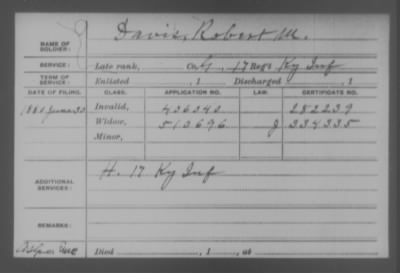 Davis, Robert M.
NAME OF SOLDIER:
SERVICE: Late rank, Co. G, 17 Reg't Ky Inf
TERM OF SERVICE: Enlisted , 1 Discharged , 1
DATE OF FILING. CLASS. APPLICATION NO. LAW. CERTIFICATE NO.
1880 June 30 Invalid, 406340 282239
Widow, 510696 J 334335
Minor,
ADDITIONAL SERVICES: H. 17 Ky Inf
REMARKS:
Died , 1 , at